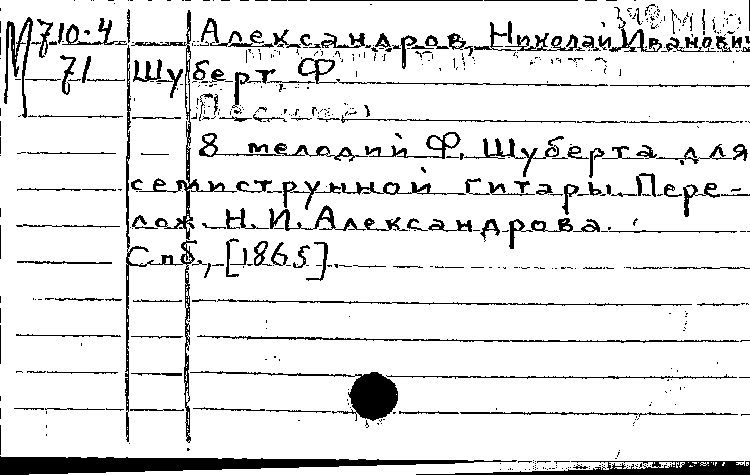 М 710-4 Александров, Николай Иванович
71 Шуберт, Ф.
8 мелодий Ф. Шуберта для
семиструнной гитары. Пере-
лож. Н. И. Александрова.
Спб., [1865].